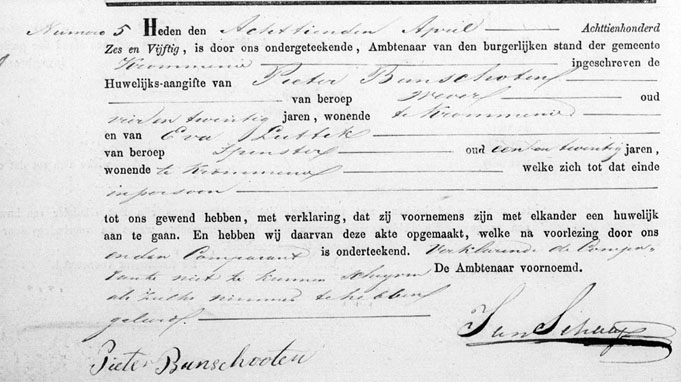 Numero 5 Heden den Achttienden April Achttienhonderd
Zes en Vijftig, is door ons ondergeteekende, Ambtenaar van den burgerlijken stand der gemeente
Krommenie ingeschreven de
Huwelijks-aangifte van Pieter Bunschoten
van beroep Wever oud
vier en twintig jaren, wonende te Krommenie
en van Eva Luttek
van beroep Spinster oud een en twintig jaren,
wonende te Krommenie welke zich tot dat einde
in persoon
tot ons gewend hebben, met verklaring, dat zij voornemens zijn met elkander een huwelijk
aan te gaan. En hebben wij daarvan deze akte opgemaakt, welke na voorlezing door ons
en den Comparant is onderteekend. Verklarende de Compa-
rante niet te kunnen schryven De Ambtenaar voornoemd.
als zulks nimmer te hebben
geleerd.
Jan Schaap
Pieter Bunschooten